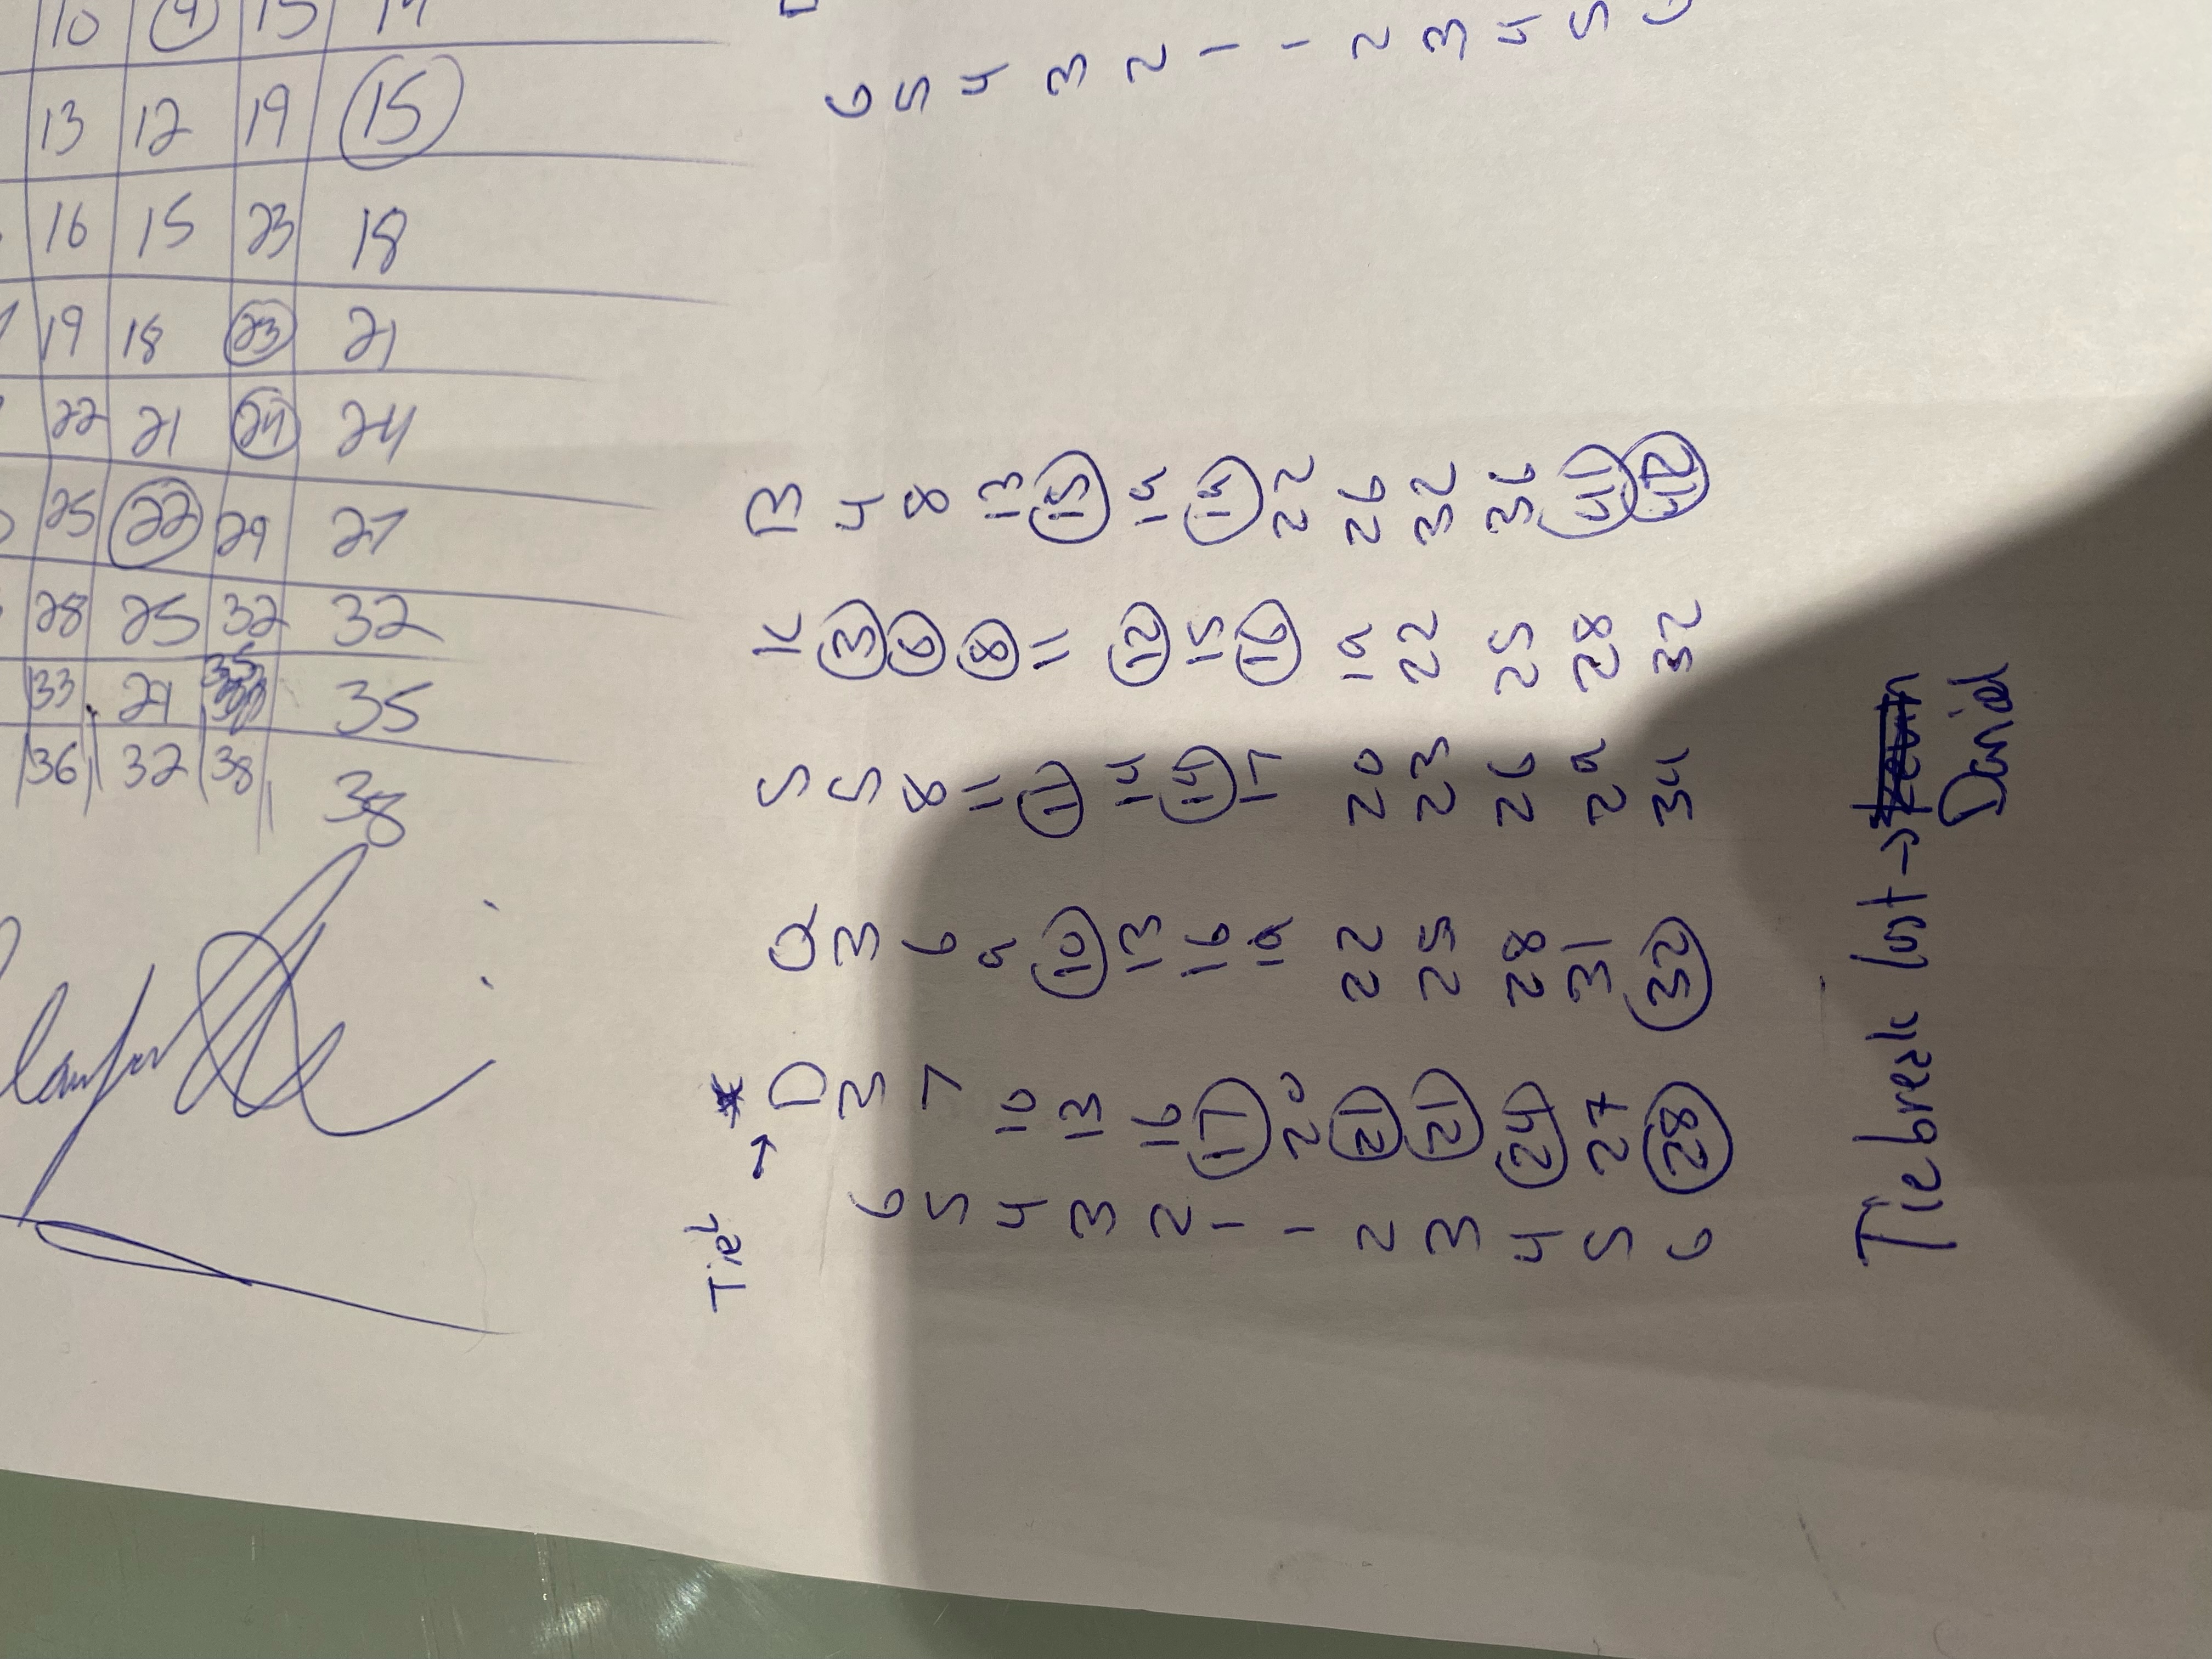 10 13 16 19 22 25 28 33 36
9 12 15 18 21 22 25 24 32
15 19 23 23 24 29 32 35 38
14 15 18 21 24 27 32 35 38
Tie
D Q S K B
6 3 3 5 3 4 6
5 7 6 8 6 8 5
4 10 9 11 8 13 4
3 13 10 11 11 15 3
2 16 13 14 12 19 2
1 17 16 14 15 19 1
1 20 19 17 16 22 1
2 21 22 20 19 26 2
3 21 25 23 22 32 3
4 24 28 26 25 36 4
5 27 31 29 28 41 5
6 28 32 34 32 42 6
Tiebreak lost → Kevin
Daniel